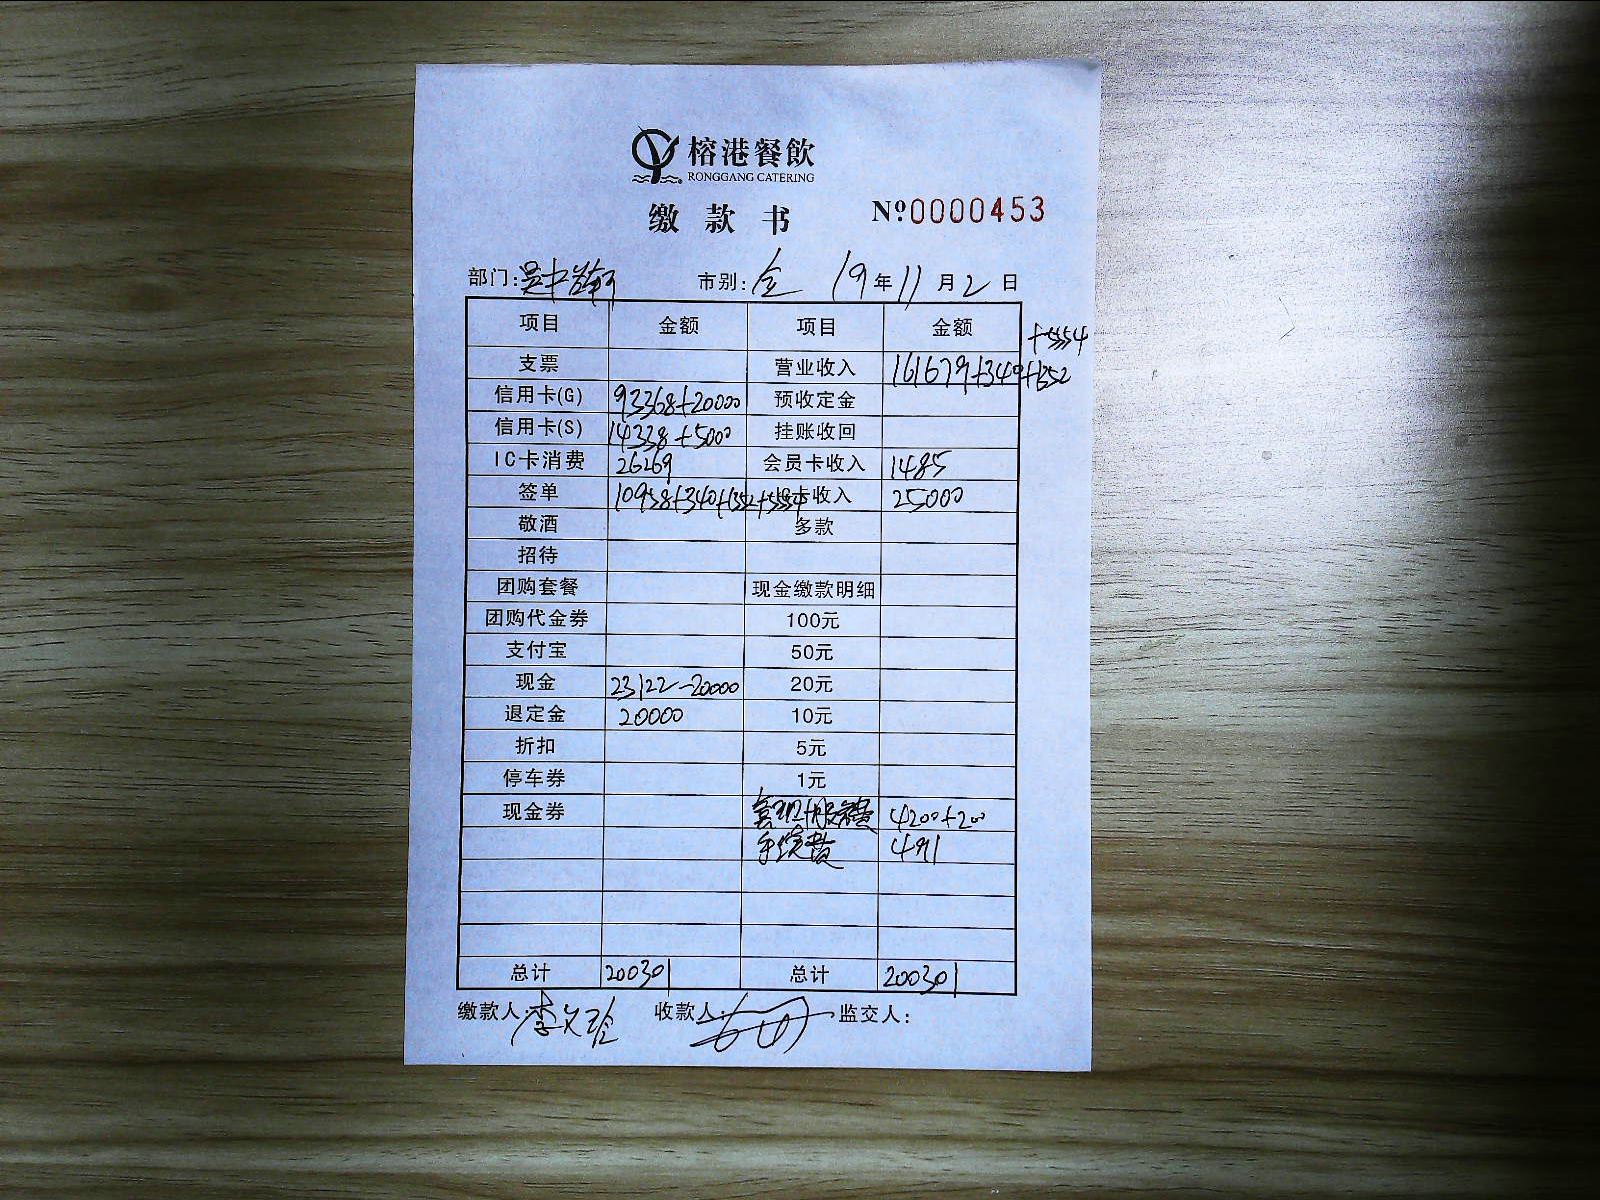 榕港餐飲
RONGGANG CATERING
缴款书 №0000453
部门:吴中 市别:全 19年11月2日
项目 金额 项目 金额
+5554
支票 营业收入 161679+340+1352
信用卡(G) 93368+20000 预收定金
信用卡(S) 14338+5000 挂账收回
IC卡消费 26269 会员卡收入 1485
签单 10958+340+1352+5554 卡收入 25000
敬酒 多款
招待
团购套餐 现金缴款明细
团购代金券 100元
支付宝 50元
现金 23122-20000 20元
退定金 20000 10元
折扣 5元
停车券 1元
现金券 4200+200
手续费 491
总计 200301 总计 200301
缴款人:李文玲 收款人: 监交人: